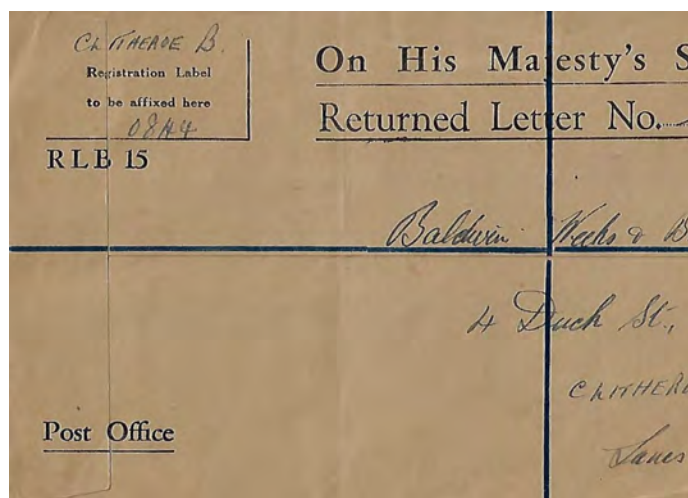 CLITHEROE B.
Registration Label
to be affixed here
0844
RLB 15
On His Majesty's S
Returned Letter No.
Baldwin Weeks & B
4 Duck St.,
CLITHERO
Post Office
Lancs